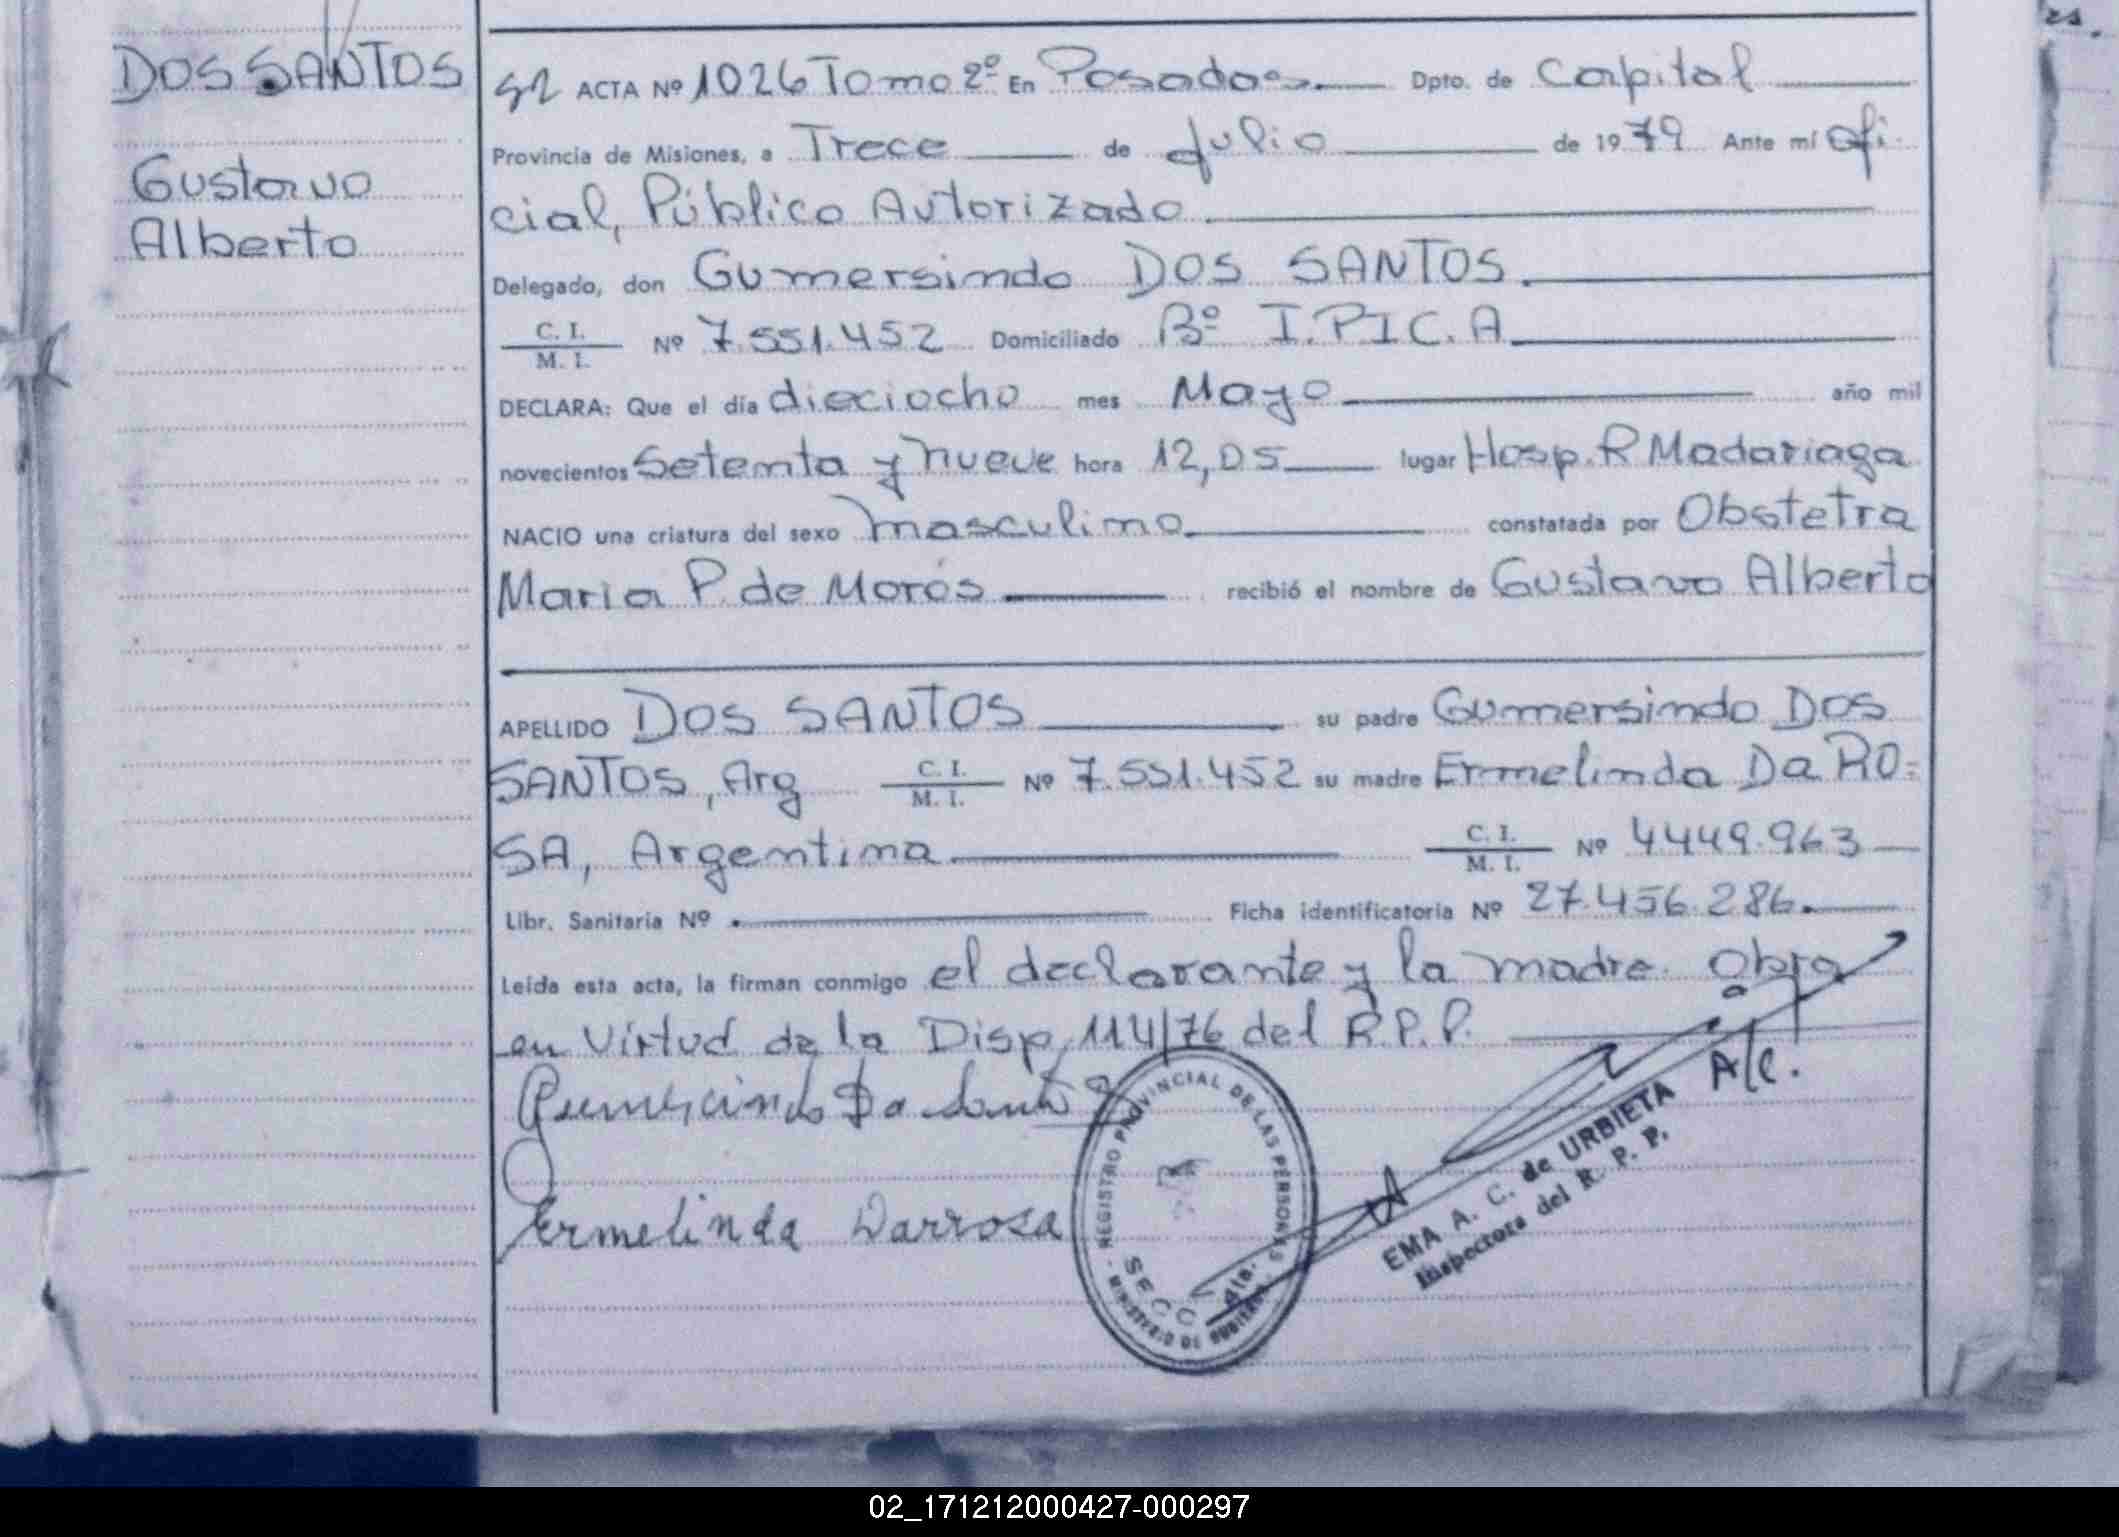 DOS SANTOS
Gustavo
Alberto
ACTA Nº 1026 Tomo 2º En Posadas Dpto. de Capital
Provincia de Misiones, a Trece de Julio de 1979 Ante mí Ofi-
cial, Público Autorizado
Delegado, don Gumersindo DOS SANTOS.
C. I. / M. I. Nº 7.551.452 Domiciliado Bº I.P.I.C.A
DECLARA: Que el día dieciocho mes Mayo año mil
novecientos Setenta y nueve hora 12,05 lugar Hosp. R Madariaga
NACIO una criatura del sexo masculino constatada por Obstetra
Maria P. de Morós recibió el nombre de Gustavo Alberto
APELLIDO DOS SANTOS su padre Gumersindo DOS
SANTOS, Arg C. I. / M. I. Nº 7.551.452 su madre Ermelinda Da RO=
SA, Argentina C. I. / M. I. Nº 4449.963
Libr. Sanitaria Nº Ficha identificatoria Nº 27.456.286.
Leída esta acta, la firman conmigo el declarante y la madre. Obro
en Virtud de la Disp. 114/76 del R.P.P.
Ermelinda Darrosa
REGISTRO PROVINCIAL DE LAS PERSONAS
MINISTERIO DE
SECC
A/C.
EMA A. C. de URBIETA
Inspectora del R. P. P.
02_171212000427-000297